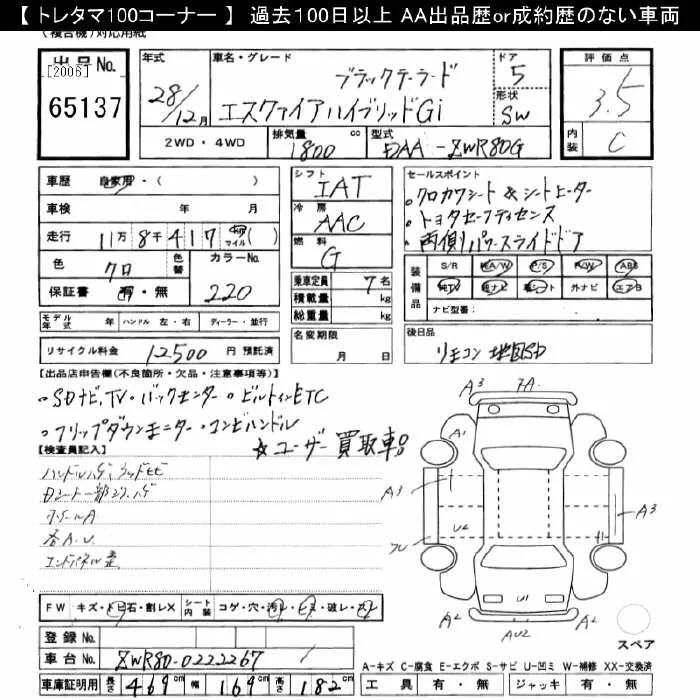 【 トレタマ100コーナー 】 過去100日以上 AA出品歴or成約歴のない車両
(複合機)対応用紙
出品No.
[2006]
65137
年式
28/12月
車名・グレード
ブラックテーラード
エスクァイアハイブリッドGi
ドア
5
形状
SW
評価点
3.5
内装
C
2WD・4WD
排気量
1800 cc
型式
DAA-ZWR80G
車歴 自家用・( )
車検 年 月
走行 11万 8千 417 km マイル ( )
色 クロ
色替
カラーNo.
220
保証書 有・無
シフト
IAT
冷房
AAC
燃料
G
乗車定員 7名
積載量 kg
総重量 kg
セールスポイント
・クロカワシート & シートヒーター
・トヨタセーフティセンス
・両側パワースライドドア
装備品
S/R 純A/W P/S P/W ABS
純TV 純ナビ 革シート 外ナビ エアB
ナビ型番:
モデル年式 年 ハンドル 左・右 ディーラー・並行
リサイクル料金 12500 円 預託済
名変期限
月 日
後日品
リモコン 地図SD
【出品店申告欄(不良箇所・欠品・注意事項等)】
・SDナビ,TV・バックモニター・ビルトインETC
・フリップダウンモニター・コンビハンドル
☆ユーザー買取車。
【検査員記入】
ハンドルハゲ,ウッドヒビ
Dシート一部シワ,ハゲ
ホイールA
各A.U.
エンドパネル歪
A3
7A
A1
A3
A3
U2
フレ
U1
A2
AU2
A2
スペア
FW キズ・トビ石・割レX
シート内装 コゲ・穴・汚レ・ヒビ・破レ・スレ
登録No.
車台No. ZWR80-0222267
車庫証明用 長さ 469cm 幅 169cm 高さ 182cm
A-キズ C-腐食 E-エクボ S-サビ U-凹ミ W-補修 XX-交換済
工具 有・無 ジャッキ 有・無